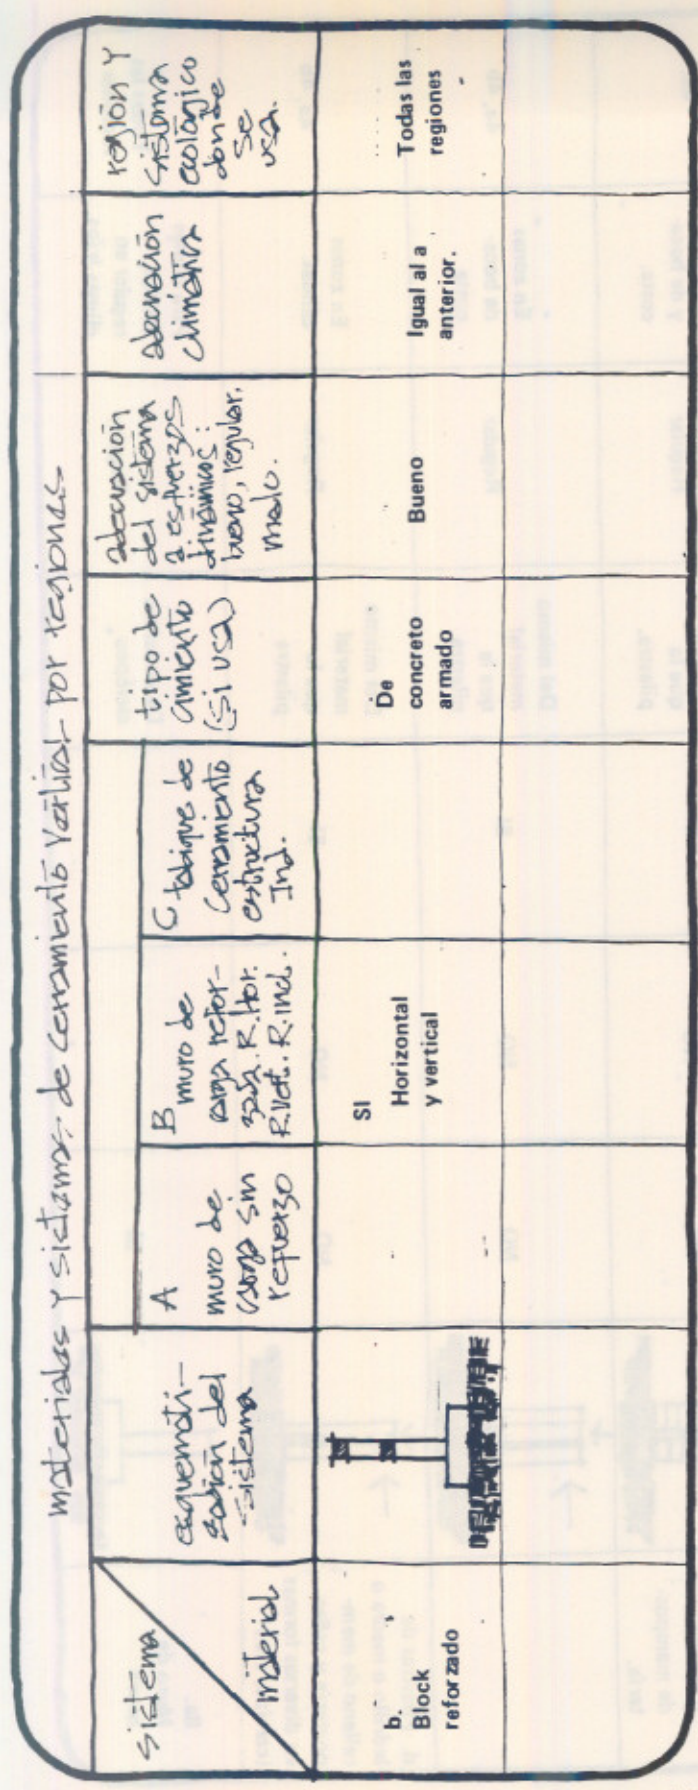 materiales y sistemas de cerramiento vertical por regiones
sistema
material
esquemati-
zación del
sistema
A
muro de
carga sin
refuerzo
B
muro de
carga refor-
zada. R. Hor.
R. Vert. R. incl.
C tabique de
cerramiento
estructura
Ind.
tipo de
cimiento
(si usa)
adecuación
del sistema
a esfuerzos
dinámicos:
bueno, regular,
malo.
adecuación
climática
región y
sistema
ecológico
donde
se
usa.
b.
Block
reforzado
SI
Horizontal
y vertical
De
concreto
armado
Bueno
Igual al a
anterior.
Todas las
regiones